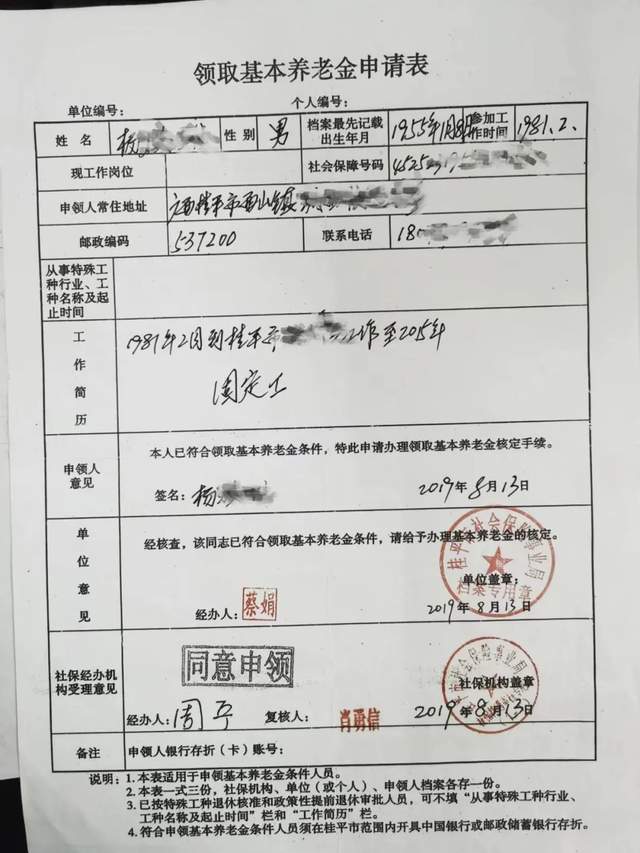 领取基本养老金申请表
单位编号： 个人编号：
姓 名 杨 性 别 男 档案最先记载出生年月 1955年1月8日 参加工作时间 1981.2.
现工作岗位 社会保障号码 45252
申领人常住地址 广西桂平市西山镇
邮政编码 537200 联系电话 18
从事特殊工种行业、工种名称及起止时间
工作简历 1981年2月到桂平市 工作至2015年
固定工
申领人意见 本人已符合领取基本养老金条件，特此申请办理领取基本养老金核定手续。
签名：杨 2019年8月13日
单位意见 经核查，该同志已符合领取基本养老金条件，请给予办理基本养老金的核定。
桂平市社会保险事业局
档案专用章
单位盖章：
经办人：蔡娟 2019年8月13日
社保经办机构受理意见 同意申领
社保机构盖章
经办人：周平 复核人：肖勇信 2019年8月13日
备注 申领人银行存折（卡）账号：
说明：1.本表适用于申领基本养老金条件人员。
2.本表一式三份，社保机构、单位（或个人）、申领人档案各存一份。
3.已按特殊工种退休核准和政策性提前退休审批人员，可不填“从事特殊工种行业、
工种名称及起止时间”栏和“工作简历”栏。
4.符合申领基本养老金条件人员须在桂平市范围内开具中国银行或邮政储蓄银行存折。